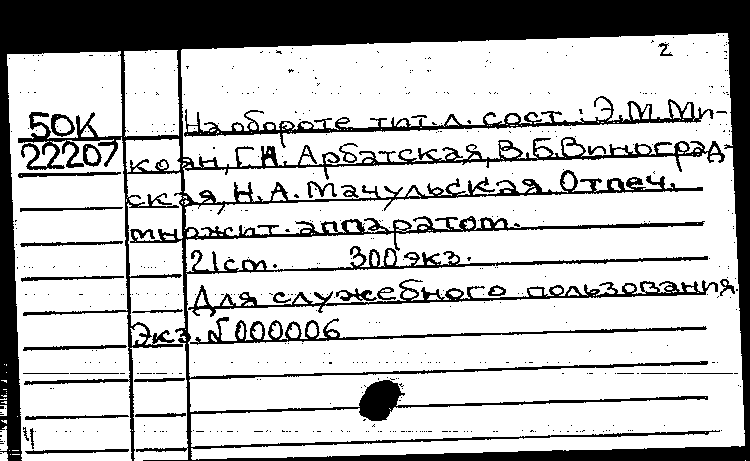 2
50К
22207
На обороте тит. л. сост.: Э.М. Ми-
коян, Г.Н. Арбатская, В.Б. Виноград-
ская, Н.А. Мачульская. Отпеч.
множит. аппаратом.
21 cm. 300 экз.
Для служебного пользования.
Экз. № 000006